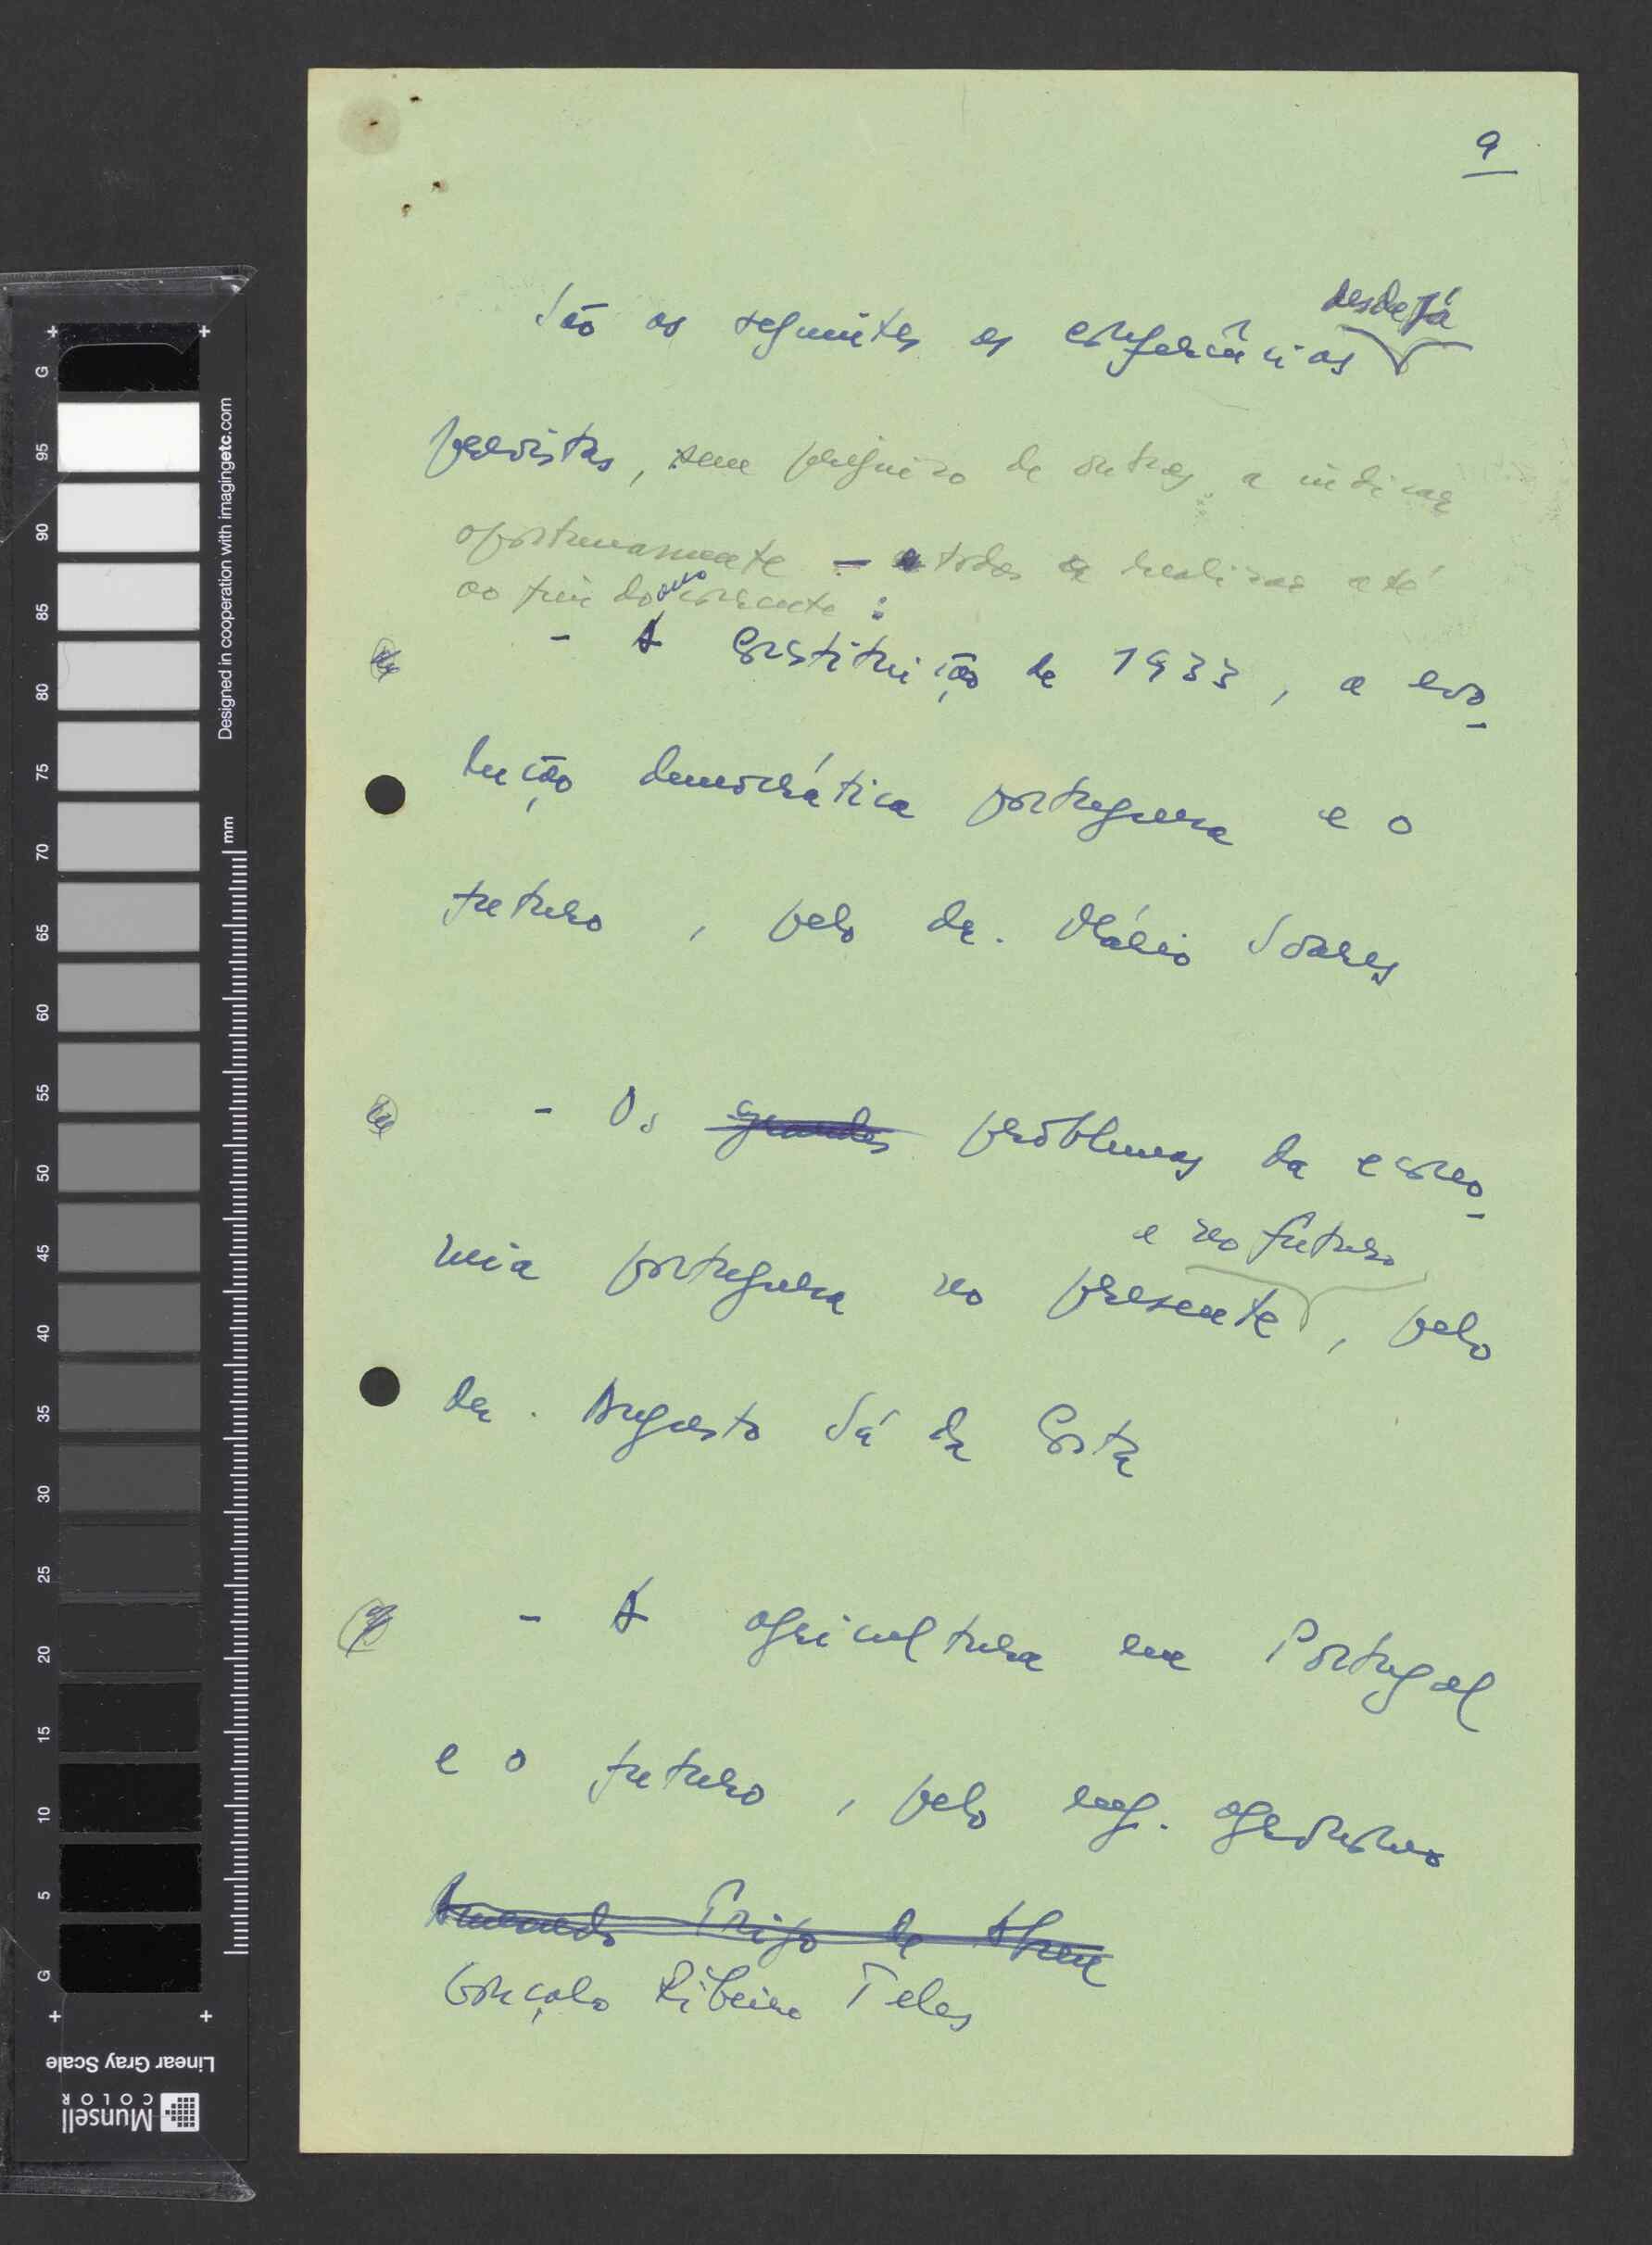 9
desde já
São as seguintes as conferências
previstas, sem prejuízo de outras a indicar
oportunamente – todas a realizar até
ao fim do ano corrente :
- A Constituição de 1933, a evo-
lução democrática portuguesa e o
futuro, pelo dr. Mário Soares
- Os grandes problemas da econo-
e no futuro
mia portuguesa no presente, pelo
dr. Augusto Sá da Costa
- A agricultura em Portugal
e o futuro, pelo eng. agrónomo
Armando Trigo de Abreu
Gonçalo Ribeiro Teles
G 95 90 85 80 75 70 65 60 55 50 45 40 35 30 25 20 15 10 5 G
Designed in cooperation with imagingetc.com
mm
Linear Gray Scale
Munsell
COLOR